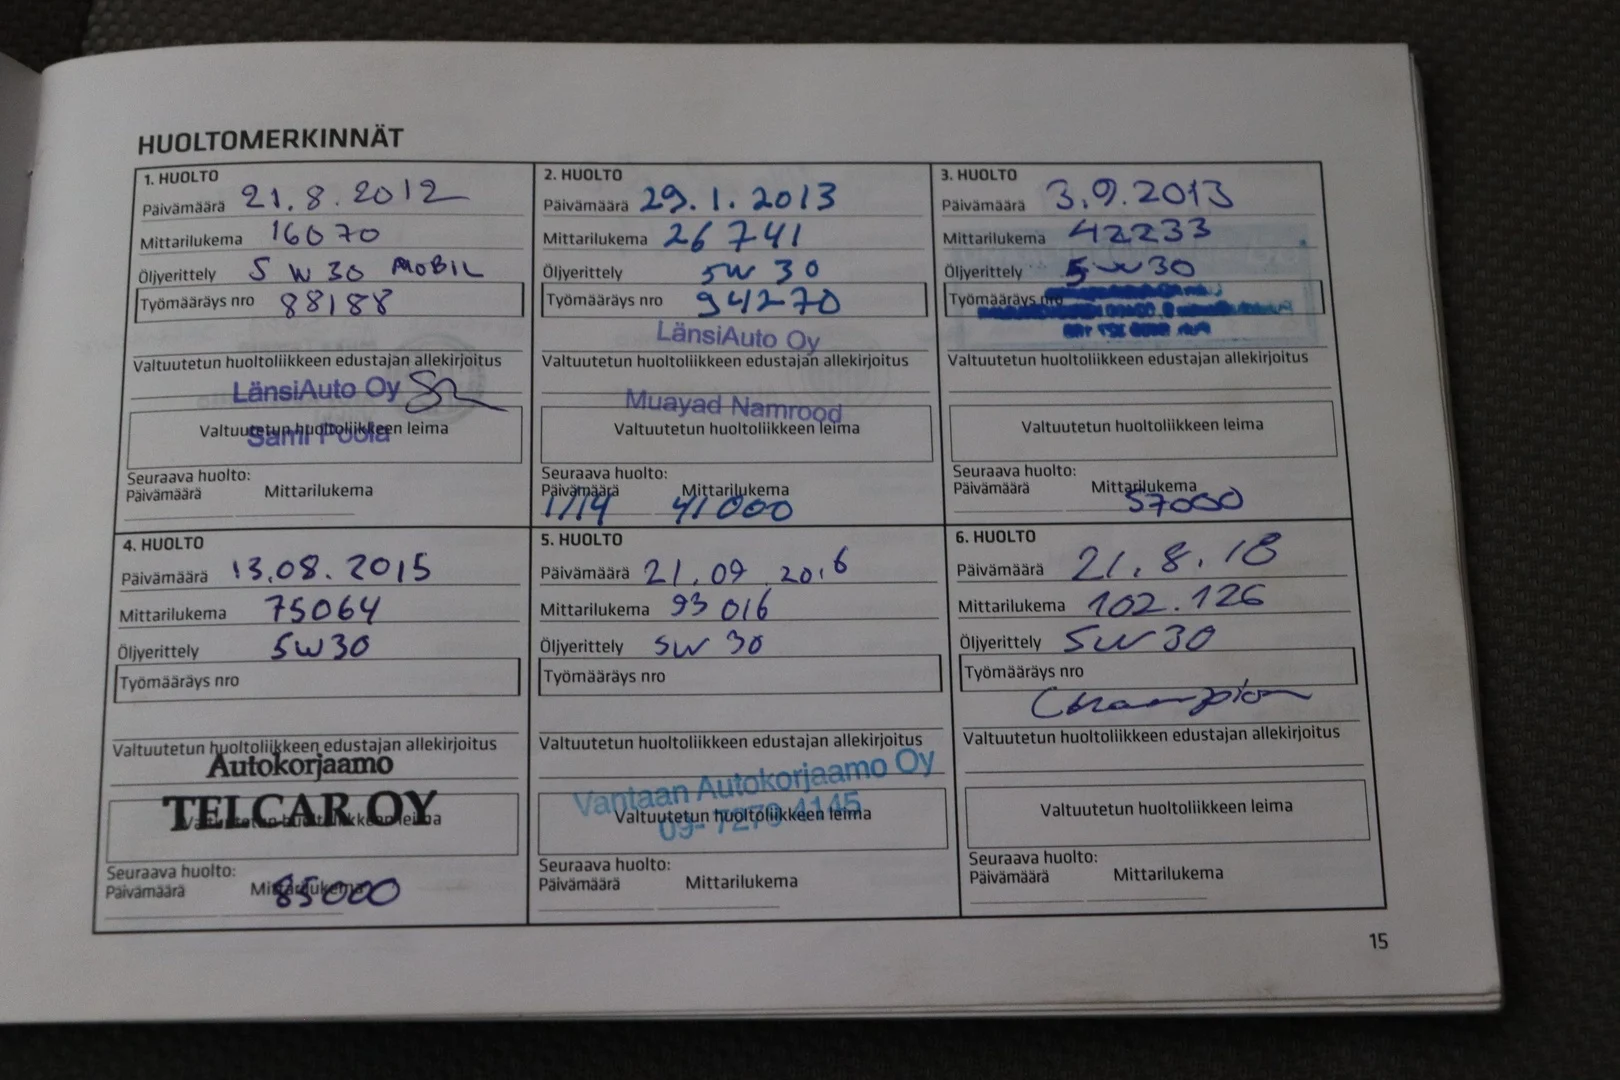 HUOLTOMERKINNÄT
1. HUOLTO
Päivämäärä 21.8.2012
Mittarilukema 16070
Öljyerittely 5 W 30 MOBIL
Työmääräys nro 88188
Valtuutetun huoltoliikkeen edustajan allekirjoitus
LänsiAuto Oy
Valtuutetun huoltoliikkeen leima
Sami
Seuraava huolto:
Päivämäärä Mittarilukema
2. HUOLTO
Päivämäärä 29.1.2013
Mittarilukema 26741
Öljyerittely 5W 30
Työmääräys nro 94270
LänsiAuto Oy
Valtuutetun huoltoliikkeen edustajan allekirjoitus
Muayad Namrood
Valtuutetun huoltoliikkeen leima
Seuraava huolto:
Päivämäärä Mittarilukema
1/14 41000
3. HUOLTO
Päivämäärä 3.9.2013
Mittarilukema 42233
Öljyerittely 5W30
Työmääräys nro
Valtuutetun huoltoliikkeen edustajan allekirjoitus
Valtuutetun huoltoliikkeen leima
Seuraava huolto:
Päivämäärä Mittarilukema
57000
4. HUOLTO
Päivämäärä 13.08.2015
Mittarilukema 75064
Öljyerittely 5W30
Työmääräys nro
Valtuutetun huoltoliikkeen edustajan allekirjoitus
Autokorjaamo
TELCAR OY
Valtuutetun huoltoliikkeen leima
Seuraava huolto:
Päivämäärä Mittarilukema
85000
5. HUOLTO
Päivämäärä 21.09.2016
Mittarilukema 93 016
Öljyerittely 5W 30
Työmääräys nro
Valtuutetun huoltoliikkeen edustajan allekirjoitus
Vantaan Autokorjaamo Oy
09- 7270 4145
Valtuutetun huoltoliikkeen leima
Seuraava huolto:
Päivämäärä Mittarilukema
6. HUOLTO
Päivämäärä 21.8.18
Mittarilukema 102.126
Öljyerittely 5W 30
Työmääräys nro
Champion
Valtuutetun huoltoliikkeen edustajan allekirjoitus
Valtuutetun huoltoliikkeen leima
Seuraava huolto:
Päivämäärä Mittarilukema
15